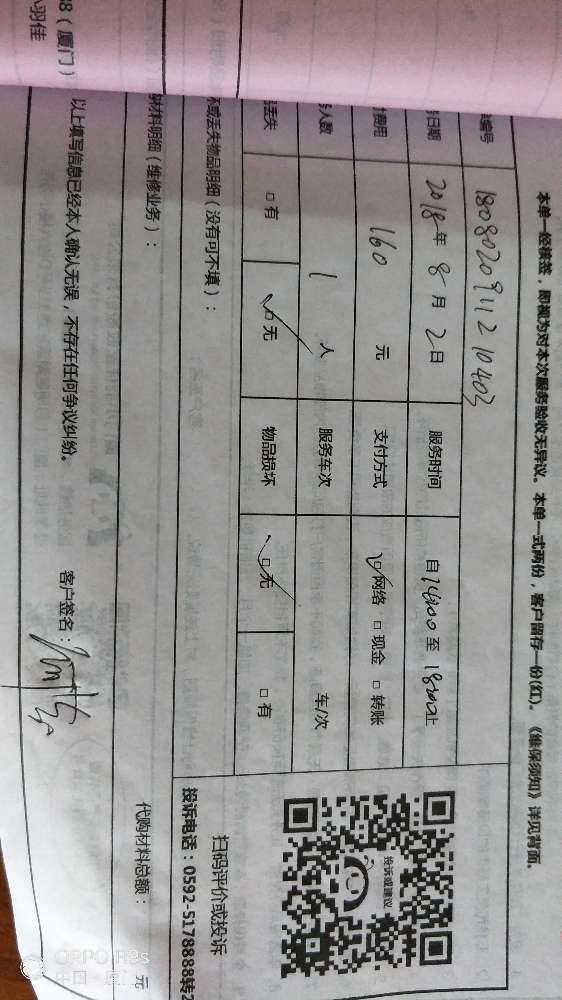 本单一经核签，即视为对本次服务验收无异议。本单一式两份，客户留存一份(红)。《维保须知》详见背面。
编号 180802091121040
日期 2018年8月2日 服务时间 自14:00至18:00止
费用 160 元 支付方式 □网络 □现金 □转账
人数 1 人 服务车次 车/次
丢失 □有 □无 物品损坏 □无 □有
坏或丢失物品明细（没有可不填）：
材料明细（维修业务）：
代购材料总额： 元
以上填写信息已经本人确认无误，不存在任何争议纠纷。 客户签名：
投诉或建议
扫码评价或投诉
投诉电话：0592-5178888转2
98（厦门）
羽佳
OPPO R9s